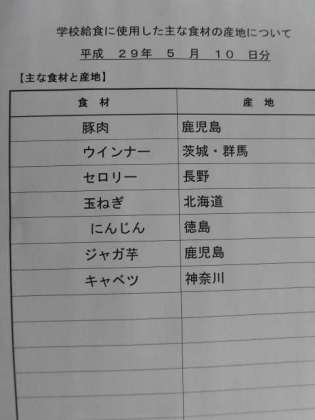 学校給食に使用した主な食材の産地について
平成 29年 5 月 10 日分
【主な食材と産地】
食 材 産 地
豚肉 鹿児島
ウインナー 茨城・群馬
セロリー 長野
玉ねぎ 北海道
にんじん 徳島
ジャガ芋 鹿児島
キャベツ 神奈川